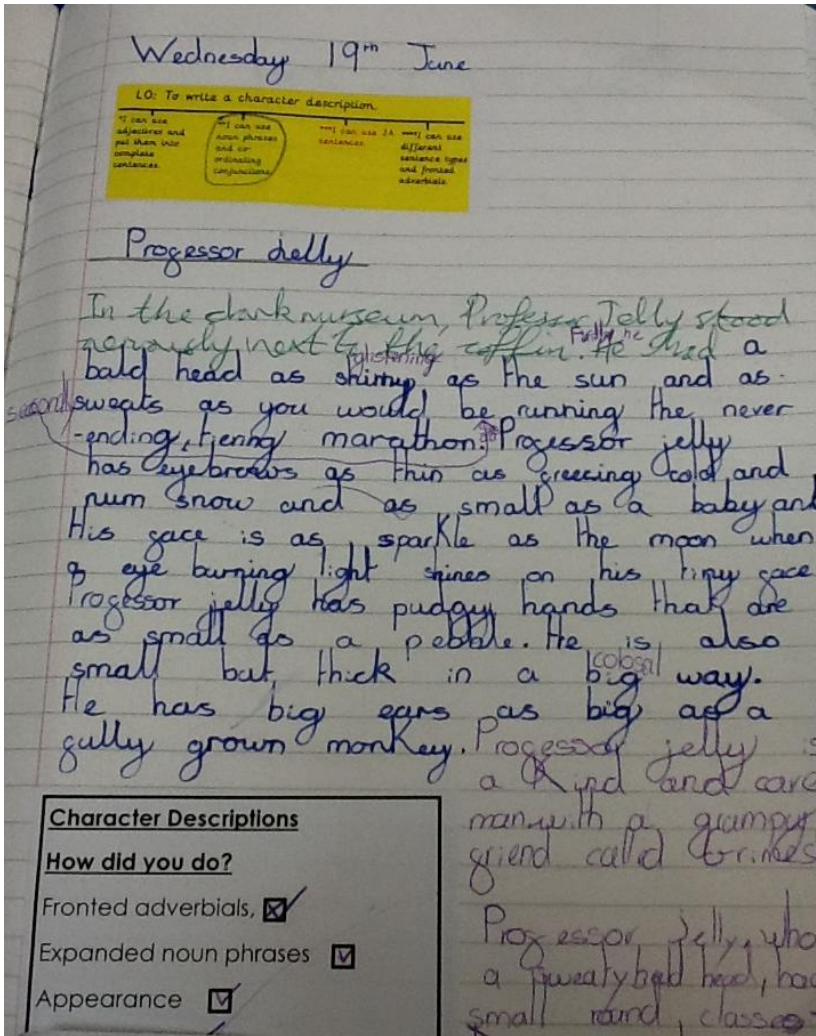 Wednesday 19th June
LO: To write a character description.
*I can use adjectives and put them into complete sentences.
**I can use noun phrases and co-ordinating conjunctions
***I can use 2A sentences.
****I can use different sentence types and fronted adverbials.
Progessor Jelly
In the dark museum, Professor Jelly stood
nervously next to the coffin. He had a
Firstly, he
bald head as shiny as the sun and as
glistening
sweats as you would be running the never
secondly
-ending, tiering marathon. Progessor jelly
has eyebrows as thin as greecing cold and
num snow and as small as a baby and
His gace is as sparkle as the moon when
a eye burning light shines on his tiny gace
Progessor jelly has pudgy hands that are
as small as a pebble. He is also
small but thick in a big way.
colosal
He has big ears as big as a
gully grown monkey. Progessor jelly is
a kind and care
man with a grumpy
griend called Grimes
Progessor Jelly, who
a sweaty bald head, had
small round classes
Character Descriptions
How did you do?
Fronted adverbials,
Expanded noun phrases
Appearance